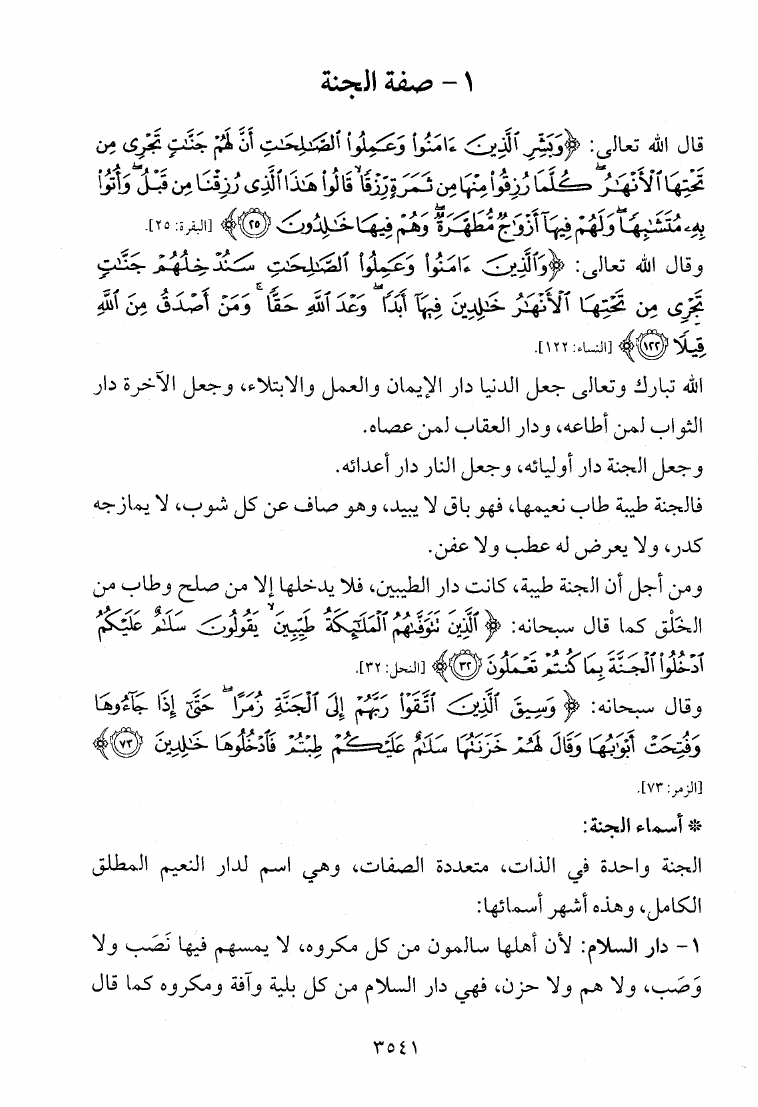 ١- صفة الجنة
قال الله تعالى: ﴿وَبَشِّرِ ٱلَّذِينَ ءَامَنُوا۟ وَعَمِلُوا۟ ٱلصَّٰلِحَٰتِ أَنَّ لَهُمْ جَنَّٰتٍ تَجْرِى مِن
تَحْتِهَا ٱلْأَنْهَٰرُ ۖ كُلَّمَا رُزِقُوا۟ مِنْهَا مِن ثَمَرَةٍ رِّزْقًا ۙ قَالُوا۟ هَٰذَا ٱلَّذِى رُزِقْنَا مِن قَبْلُ ۖ وَأُتُوا۟
بِهِۦ مُتَشَٰبِهًا ۖ وَلَهُمْ فِيهَآ أَزْوَٰجٌ مُّطَهَّرَةٌ ۖ وَهُمْ فِيهَا خَٰلِدُونَ ﴿٢٥﴾﴾ [البقرة: ٢٥].
وقال الله تعالى: ﴿وَٱلَّذِينَ ءَامَنُوا۟ وَعَمِلُوا۟ ٱلصَّٰلِحَٰتِ سَنُدْخِلُهُمْ جَنَّٰتٍ
تَجْرِى مِن تَحْتِهَا ٱلْأَنْهَٰرُ خَٰلِدِينَ فِيهَآ أَبَدًا ۖ وَعْدَ ٱللَّهِ حَقًّا ۚ وَمَنْ أَصْدَقُ مِنَ ٱللَّهِ
قِيلًا ﴿١٢٢﴾﴾ [النساء: ١٢٢].
الله تبارك وتعالى جعل الدنيا دار الإيمان والعمل والابتلاء، وجعل الآخرة دار
الثواب لمن أطاعه، ودار العقاب لمن عصاه.
وجعل الجنة دار أوليائه، وجعل النار دار أعدائه.
فالجنة طيبة طاب نعيمها، فهو باق لا يبيد، وهو صاف عن كل شوب، لا يمازجه
كدر، ولا يعرض له عطب ولا عفن.
ومن أجل أن الجنة طيبة، كانت دار الطيبين، فلا يدخلها إلا من صلح وطاب من
الخَلْق كما قال سبحانه: ﴿ٱلَّذِينَ تَتَوَفَّىٰهُمُ ٱلْمَلَٰٓئِكَةُ طَيِّبِينَ ۙ يَقُولُونَ سَلَٰمٌ عَلَيْكُمُ
ٱدْخُلُوا۟ ٱلْجَنَّةَ بِمَا كُنتُمْ تَعْمَلُونَ ﴿٣٢﴾﴾ [النحل: ٣٢].
وقال سبحانه: ﴿وَسِيقَ ٱلَّذِينَ ٱتَّقَوْا۟ رَبَّهُمْ إِلَى ٱلْجَنَّةِ زُمَرًا ۖ حَتَّىٰٓ إِذَا جَآءُوهَا
وَفُتِحَتْ أَبْوَٰبُهَا وَقَالَ لَهُمْ خَزَنَتُهَا سَلَٰمٌ عَلَيْكُمْ طِبْتُمْ فَٱدْخُلُوهَا خَٰلِدِينَ ﴿٧٣﴾﴾
[الزمر: ٧٣].
* أسماء الجنة:
الجنة واحدة في الذات، متعددة الصفات، وهي اسم لدار النعيم المطلق
الكامل، وهذه أشهر أسمائها:
١- دار السلام: لأن أهلها سالمون من كل مكروه، لا يمسهم فيها نَصَب ولا
وَصَب، ولا هم ولا حزن، فهي دار السلام من كل بلية وآفة ومكروه كما قال
٣٥٤١